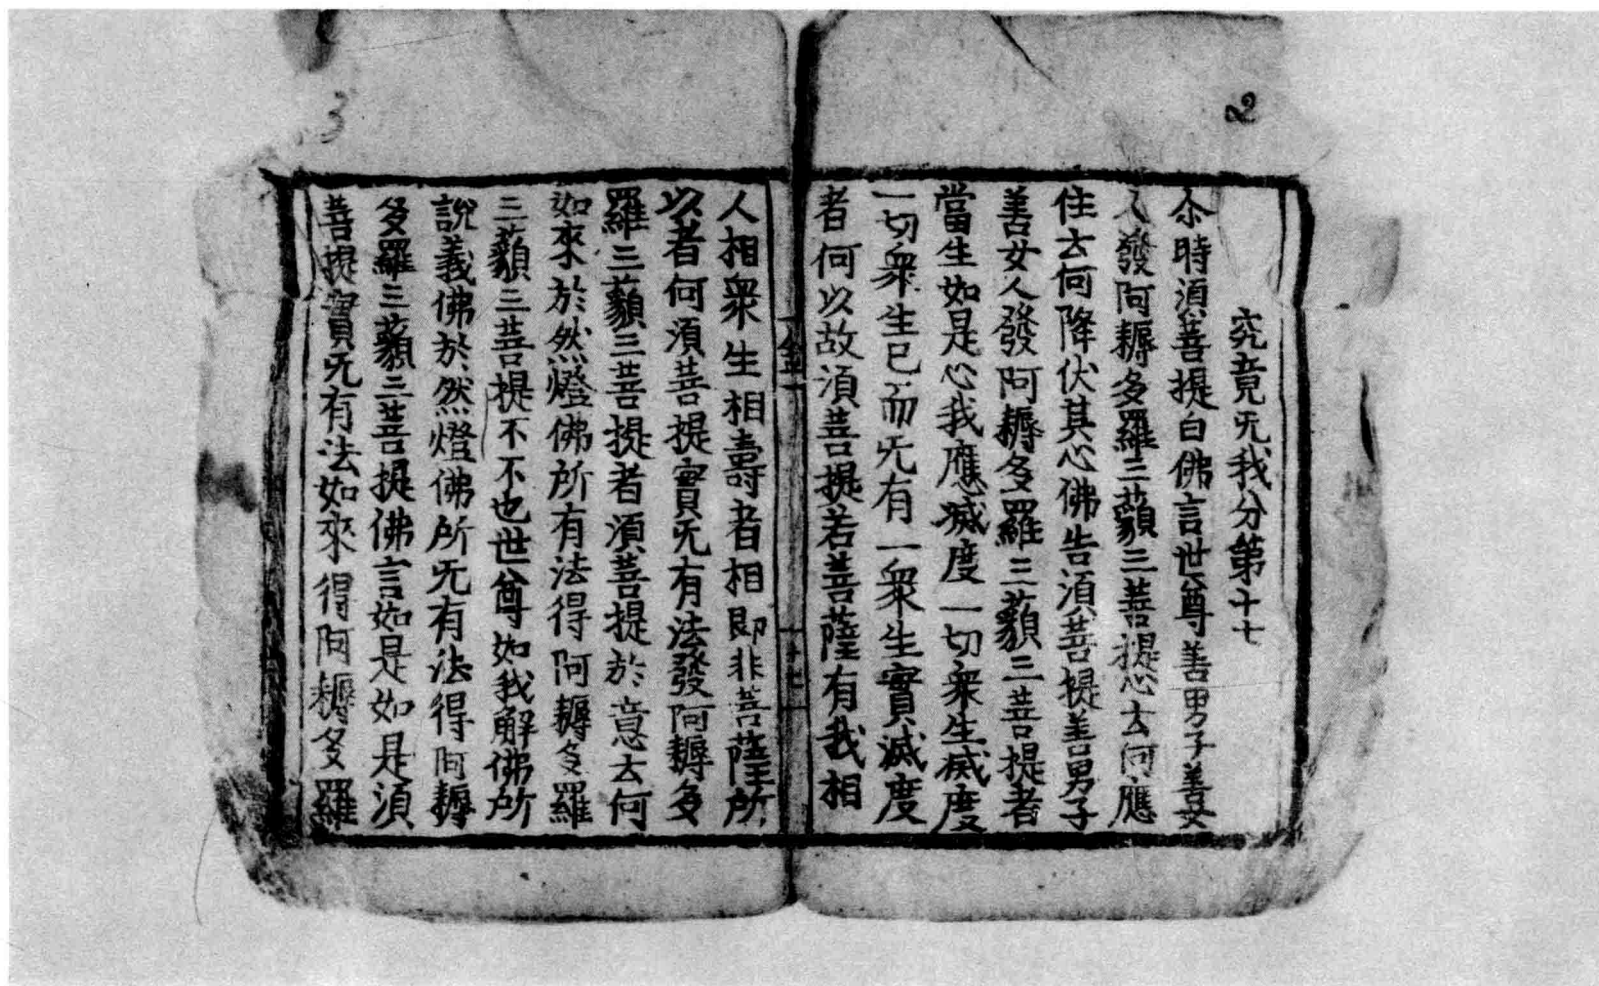 2
究竟无我分第十七
尒時湏菩提白佛言世尊善男子善女
人發阿耨多羅三藐三菩提心云何應
住云何降伏其心佛告湏菩提善男子
善女人發阿耨多羅三藐三菩提者
當生如是心我應滅度一切衆生滅度
一切衆生已而无有一衆生實滅度
者何以故湏菩提若菩薩有我相
金
十七
人相衆生相壽者相即非菩薩所
以者何湏菩提實无有法發阿耨多
羅三藐三菩提者湏菩提於意云何
如來於然燈佛所有法得阿耨多羅
三藐三菩提不不也世尊如我解佛所
說義佛於然燈佛所无有法得阿耨
多羅三藐三菩提佛言如是如是湏
菩提實无有法如來得阿耨多羅
3